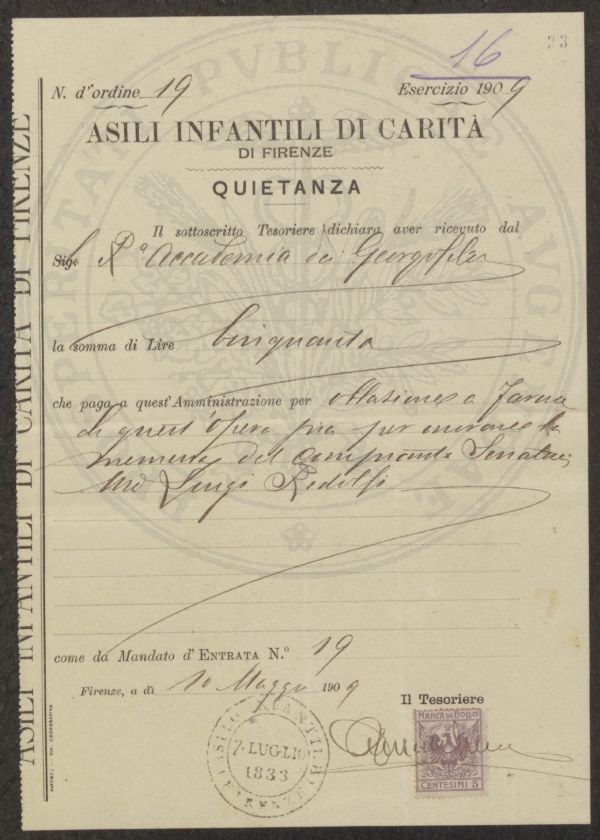 23
16
N. d'ordine 19
Esercizio 1909
ASILI INFANTILI DI CARITÀ
DI FIRENZE
QUIETANZA
Il sottoscritto Tesoriere dichiara aver ricevuto dal
Sig. R.a Accademia dei Georgofili
la somma di Lire Cinquanta
che paga a quest'Amministrazione per oblazione a favore
di quest'opera pia per onorare la
memoria del compianto Senatore
Luigi Ridolfi
come da Mandato d'ENTRATA N.° 19
Firenze, a dì 10 Maggio 1909
Il Tesoriere
MARCA DA BOLLO
CENTESIMI 5
ASILI INFANTILI
7. LUGLIO
1833
FIRENZE
ASILI INFANTILI DI CARITÀ DI FIRENZE